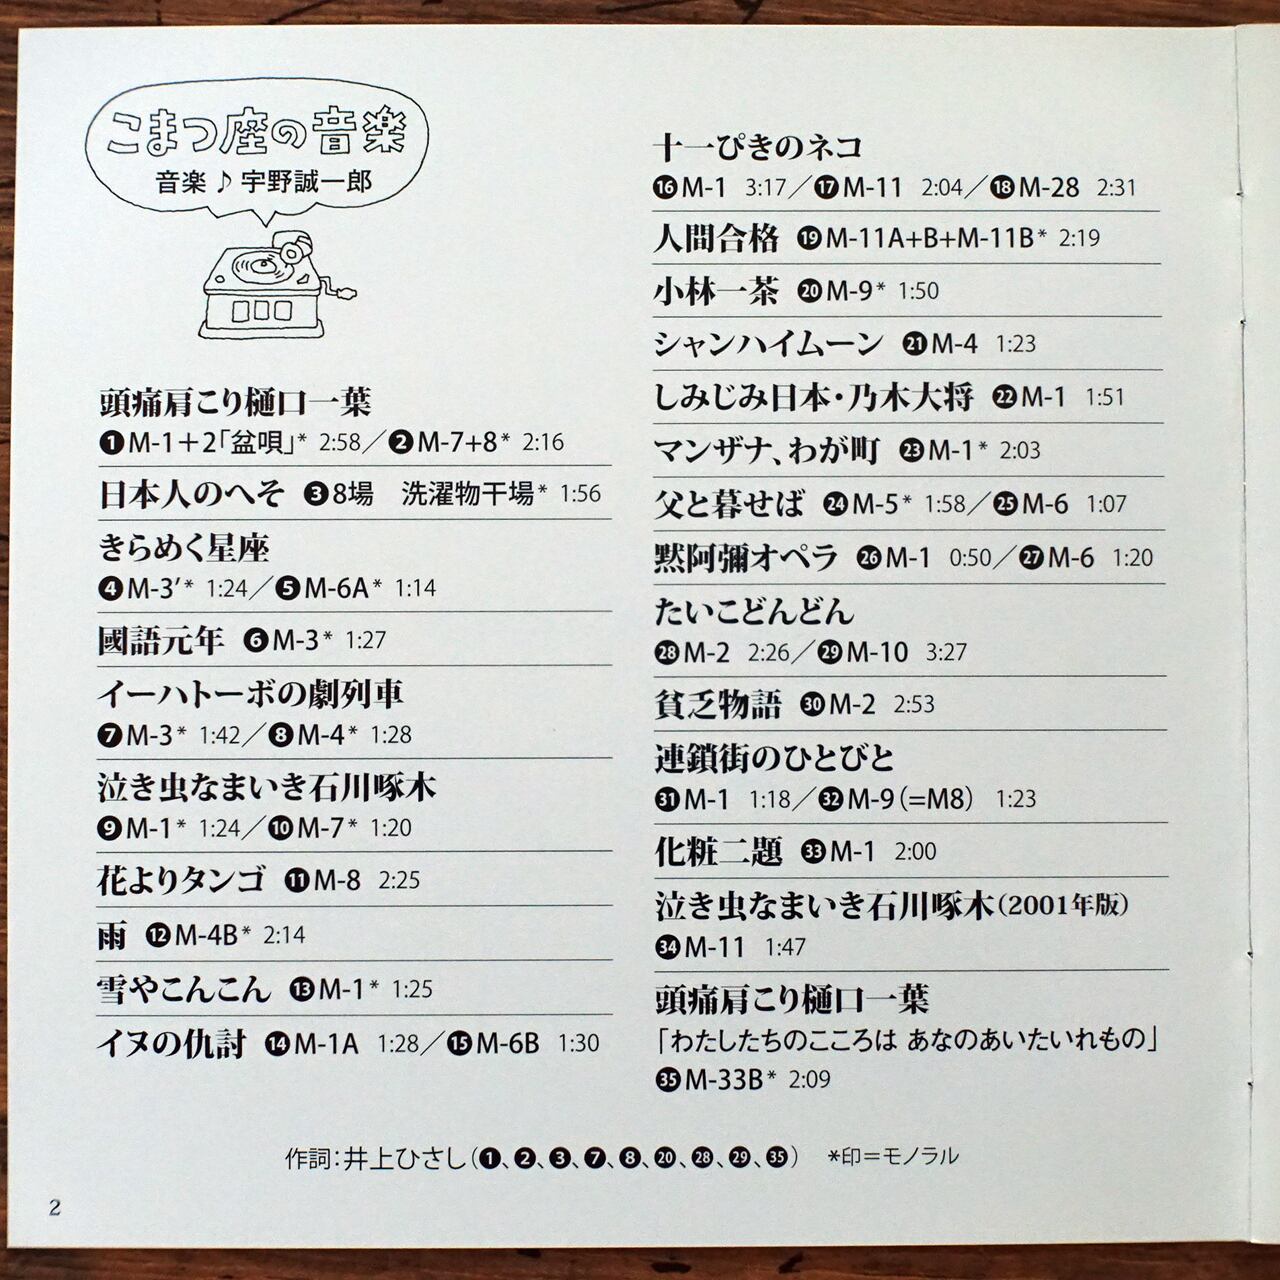 こまつ座の音楽
音楽♪宇野誠一郎
頭痛肩こり樋口一葉
❶M-1＋2「盆唄」* 2:58／❷M-7+8* 2:16
日本人のへそ ❸8場 洗濯物干場* 1:56
きらめく星座
❹M-3′* 1:24／❺M-6A* 1:14
國語元年 ❻M-3* 1:27
イーハトーボの劇列車
❼M-3* 1:42／❽M-4* 1:28
泣き虫なまいき石川啄木
❾M-1* 1:24／❿M-7* 1:20
花よりタンゴ ⓫M-8 2:25
雨 ⓬M-4B* 2:14
雪やこんこん ⓭M-1* 1:25
イヌの仇討 ⓮M-1A 1:28／⓯M-6B 1:30
十一ぴきのネコ
⓰M-1 3:17／⓱M-11 2:04／⓲M-28 2:31
人間合格 ⓳M-11A+B+M-11B* 2:19
小林一茶 ⓴M-9* 1:50
シャンハイムーン ㉑M-4 1:23
しみじみ日本・乃木大将 ㉒M-1 1:51
マンザナ、わが町 ㉓M-1* 2:03
父と暮せば ㉔M-5* 1:58／㉕M-6 1:07
黙阿彌オペラ ㉖M-1 0:50／㉗M-6 1:20
たいこどんどん
㉘M-2 2:26／㉙M-10 3:27
貧乏物語 ㉚M-2 2:53
連鎖街のひとびと
㉛M-1 1:18／㉜M-9（=M8） 1:23
化粧二題 ㉝M-1 2:00
泣き虫なまいき石川啄木（2001年版）
㉞M-11 1:47
頭痛肩こり樋口一葉
「わたしたちのこころは あなのあいたいれもの」
㉟M-33B* 2:09
作詞：井上ひさし（❶、❷、❸、❼、❽、⓴、㉘、㉙、㉟） *印＝モノラル
2